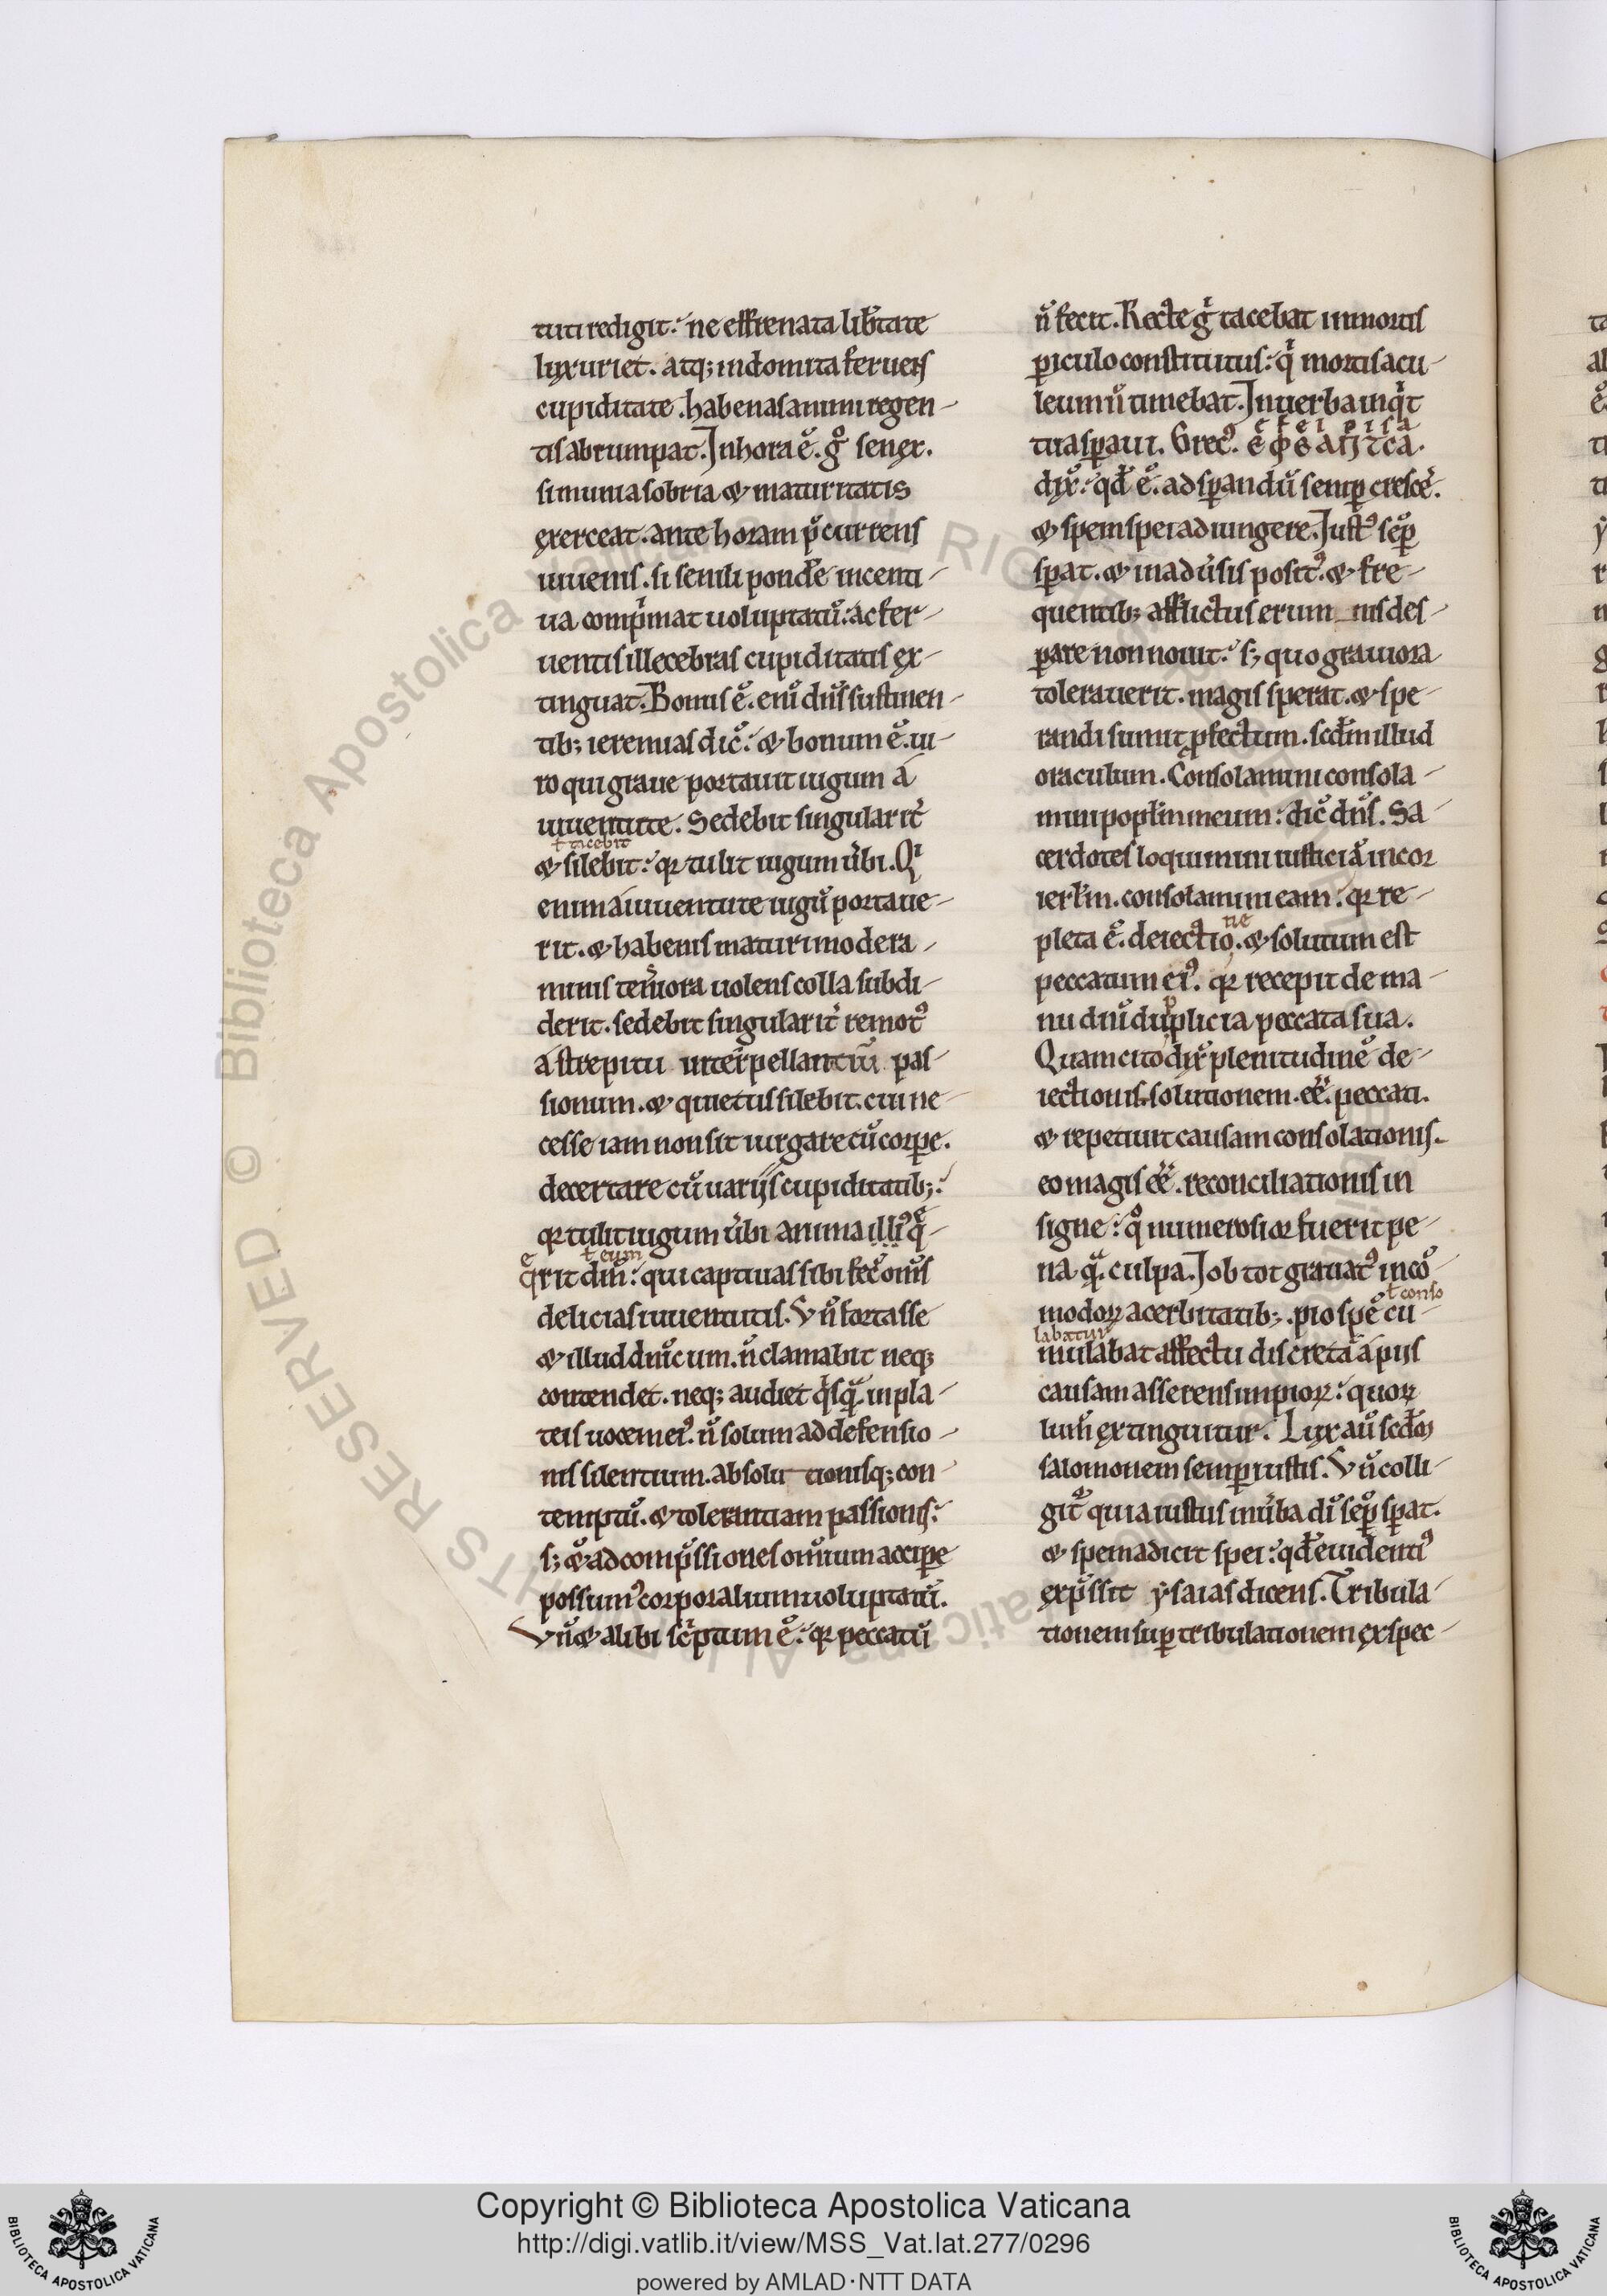 tuti redigit. ne effrenata lib̄tate
luxuriet. atq; indomita feruens
cupiditate. habenas animi regen-
tis abrumpat. In hora ē. gͦ senex.
si munia sobria & maturitatis
exerceat. ante horam p̄currens
iuuenis. si senili pond̄e incenti-
ua comp̄mat uoluptatū. ac fer-
uentis illecebras cupiditatis ex-
tinguat. Bonus ē. enī dn̄s sustinen-
tib; ieremias dic̄. & bonum ē. ui-
ro qui graue portauit iugum á
iuuentute. Sedebit singularit̄
ł tacebit
& silebit. qꝛ tulit iugum ūbi. Qͥ
enim á iuuentute iugū portaue-
rit. & habenis maturi modera-
minis teniora uolens colla subdi-
derit. sedebit singularit̄ remotꝰ
á strepitu interpellantiū pas-
sionum. & quietus silebit. cui ne-
cesse iam non sit iurgare cū corpe.
decertare cū uarijs cupiditatib;.
qꝛ tulit iugum ūbi anima illiꝰ q̄-
ł eum
q̄rit dn̄m. qui captiuas sibi fec̄ om̄s
delicias iuuentutis. Vn̄ fortasse
& illud dn̄icum. n̄ clamabit neq;
contendet. neq; audiet qͥsqͣ. in pla-
teis uocem eiꝰ. n̄ solum ad defensio-
nis silentium. absolutionisq; con-
temptū. & tolerantiam passionis.
s; & ad comp̄ssiones omnium accipe
possumꝰ corporalium uoluptatū.
Vn̄ & alibi sc̄ptum ē. qꝛ peccatū
n̄ fecit. Recte gͥ tacebat in mortis
ꝑiculo constitutus. qͥ mortis acu-
leum n̄ timebat. In uerba inqͥt
e f e i p i s a
tua sꝑaui. Grecꝰ.
dix̄. qd̄ ē. ad sꝑandū semꝑ cresce̅.
& spem spei adiungere. Iustꝰ sēꝑ
sꝑat. & in adūsis positꝰ. & fre-
quentib; afflictus erumnis des-
ꝑare non nouit. s; quo grauiora
tolerauerit. magis sperat. & spe-
randi sumit ꝓfectum. scd̄m illud
oraculum. Consolamini consola-
mini popl̄m meum. dic̄ dn̄s. Sa-
cerdotes loquimini iusticiā in cor
ierl̄m. consolamini eam. qꝛ re-
ne
pleta ē. deiectio. & solutum est
peccatum eiꝰ. qꝛ recepit de ma-
nu dn̄i duplicia peccata sua.
Quam cito dix̄ plenitudinē de-
iectionis. solutionem. eē. peccati.
& repetiuit causam consolationis.
eo magis eē. reconciliationis in
signe. qͦ numerosior fuerit pe-
na qͣ. culpa. Iob tot grauatꝰ incō-
ł conso
modoꝝ acerbitatib;. pio spē cu-
labatur
mulabat affectu discretā á pijs
causam asserens impioꝝ. quoꝝ
lum̄ extinguitur. Lux aū scd̄m
salomonem semꝑ iustis. Vn̄ colli-
git̄ quia iustus in ūba dī sēꝑ sꝑat.
& spem adicit spei. qd̄ euidentiꝰ
exp̄ssit ysaias dicens. Tribula-
tionem suꝑ tribulationem exspec-
Copyright © Biblioteca Apostolica Vaticana
http://digi.vatlib.it/view/MSS_Vat.lat.277/0296
powered by AMLAD·NTT DATA